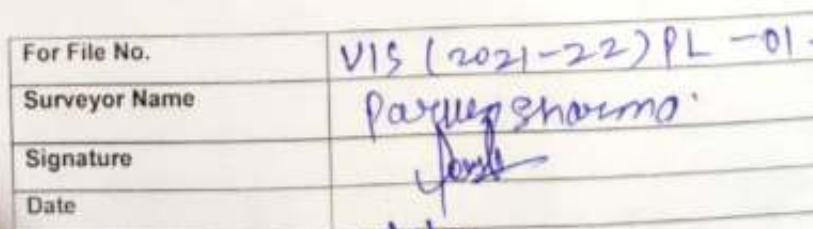 For File No. VIS (2021-22) PL -01-
Surveyor Name Parveen Sharma.
Signature
Date